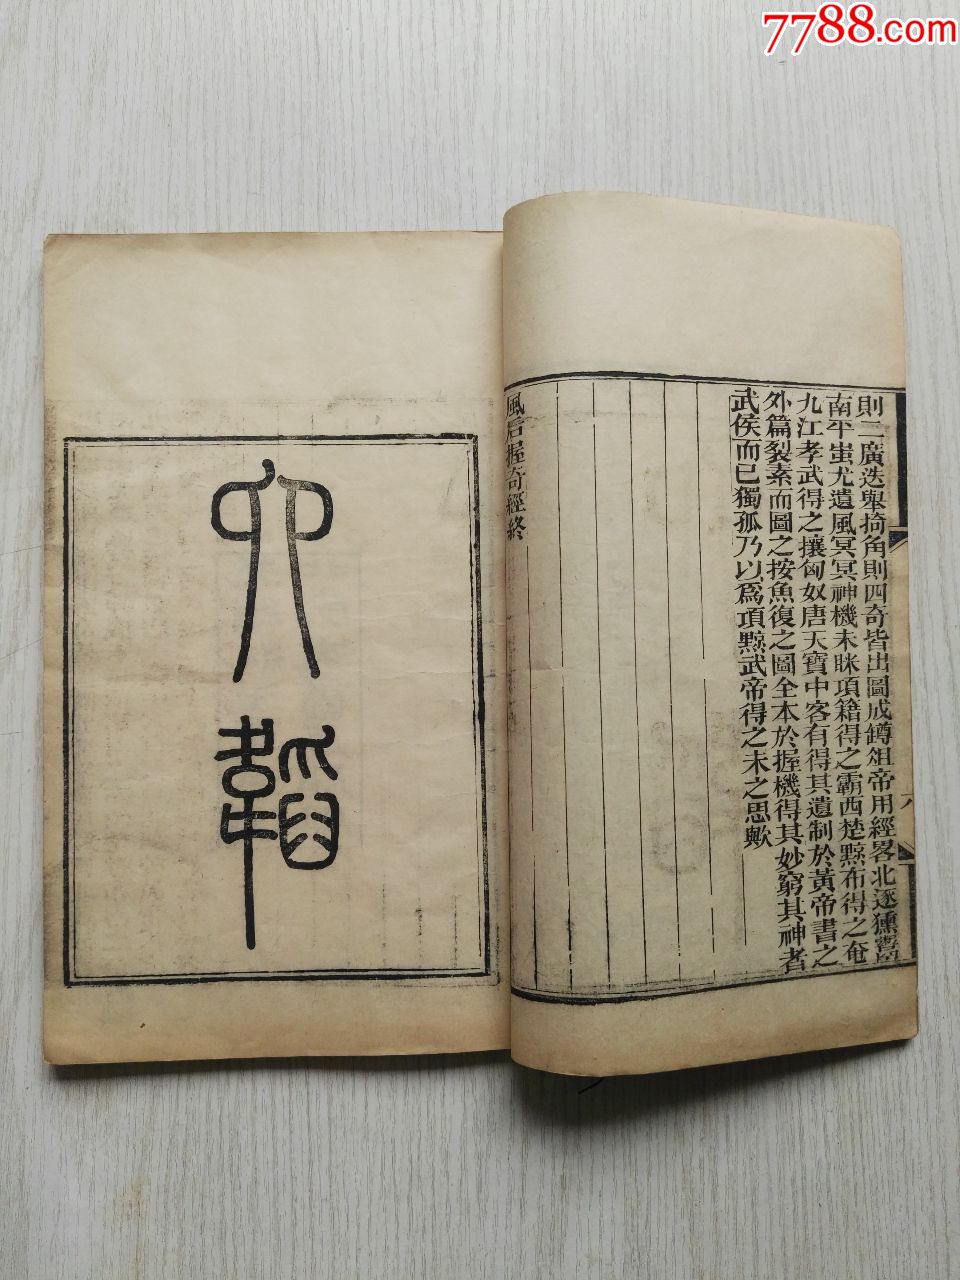 7788.com
則二廣迭舉掎角則四奇皆出圖成鐏俎帝用經畧北逐獯鬻
南平蚩尤遺風冥冥神機未眹項籍得之霸西楚黥布得之奄
九江孝武得之攘匈奴唐天寶中客有得其遺制於黃帝書之
外篇裂素而圖之按魚復之圖全本於握機得其妙窮其神者
武侯而已獨孤乃以爲項黥武帝得之未之思歟
風后握奇經終
六韜